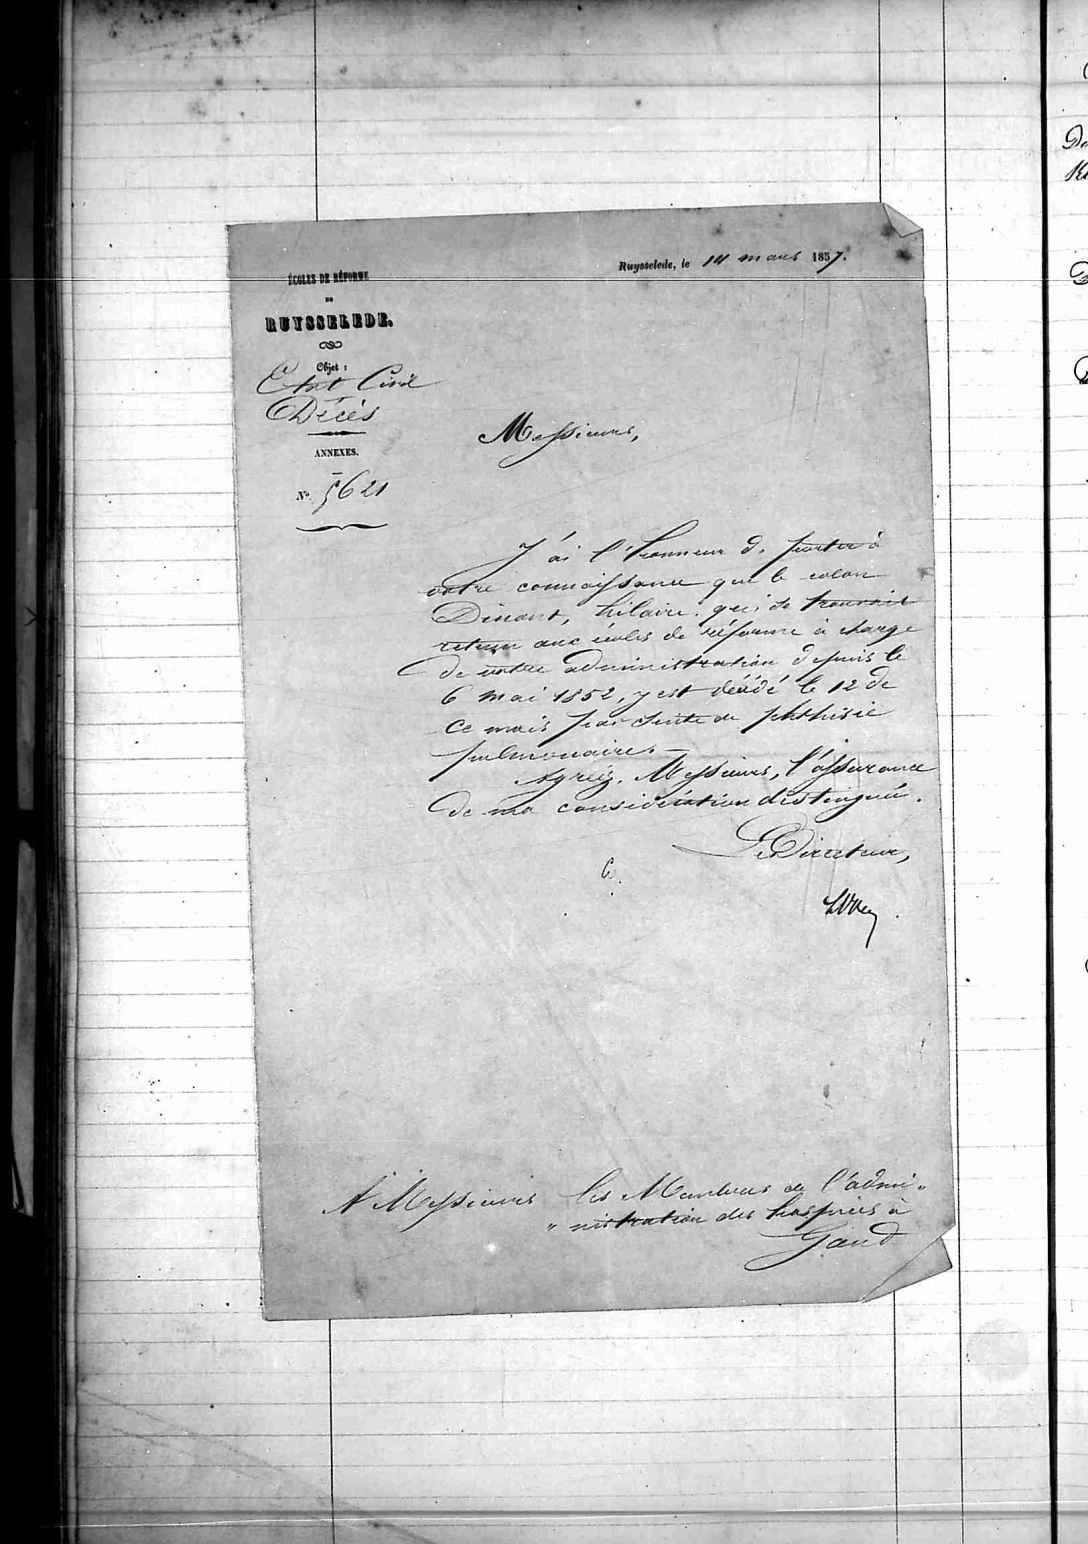 ÉCOLES DE RÉFORME
DE
RUYSSELEDE.
Objet :
Etat Civil
Décès
ANNEXES.
N° 5621
Ruysselede, le 14 mars 1857.
Messieurs,
J'ai l'honneur de porter à
votre connaissance que le colon
Dinant, hilaire. qui se trouvait
retenu aux écoles de réforme à charge
de votre administration depuis le
6 mai 1852, y est décédé le 12 de
ce mois par suite de phthisie
pulmonaire. —
Agréez, Messieurs, l'assurance
de ma considération distinguée.
Le Directeur,
A Messieurs les Membres de l'admi-
" nistration des hospices à
Gand